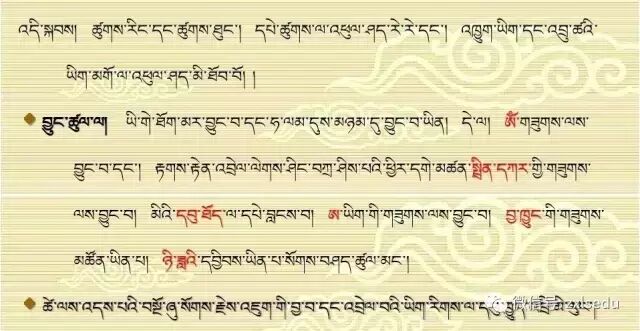 འདི་སྐབས། ཚུགས་རིང་དང་ཚུགས་ཐུང་། དཔེ་ཚུགས་ལ་འཕུལ་ཤད་རེ་རེ་དང་། འཁྱུག་ཡིག་དང་འབྲུ་ཚའི་
ཡིག་མགོ་ལ་འཕུལ་ཤད་མི་ཐོབ་བོ། །
བྱུང་ཚུལ་ལ། ཡི་གེ་ཐོག་མར་བྱུང་བ་དང་ཧ་ལམ་དུས་མཉམ་དུ་བྱུང་བ་ཡིན། དེ་ལ། ༀ་གཟུགས་ལས་
བྱུང་བ་དང་། རྟགས་རྟེན་འབྲེལ་ལེགས་ཤིང་བཀྲ་ཤིས་པའི་ཕྱིར་དགེ་མཚན་སྤྲིན་དཀར་གྱི་གཟུགས་
ལས་བྱུང་བ། མིའི་དབུ་ཐོད་ལ་དཔེ་བླངས་བ། ཨ་ཡིག་གི་གཟུགས་ལས་བྱུང་བ། བྱ་ཁྱུང་གི་གཟུགས་
མཚོན་ཡིན་པ། ཉི་ཟླའི་དབྱིབས་ཡིན་པ་སོགས་བཤད་ཚུལ་མང་།
ཚེ་ལས་འདས་པའི་བསྔོ་ཞུ་སོགས་རྗེས་འཇུག་གི་བྱ་བ་དང་འབྲེལ་བའི་ཡིག་རིགས་ལ་དབུ་ཁྱུད་འབྲི་མི་རུང་།
微信号: zxlsedu